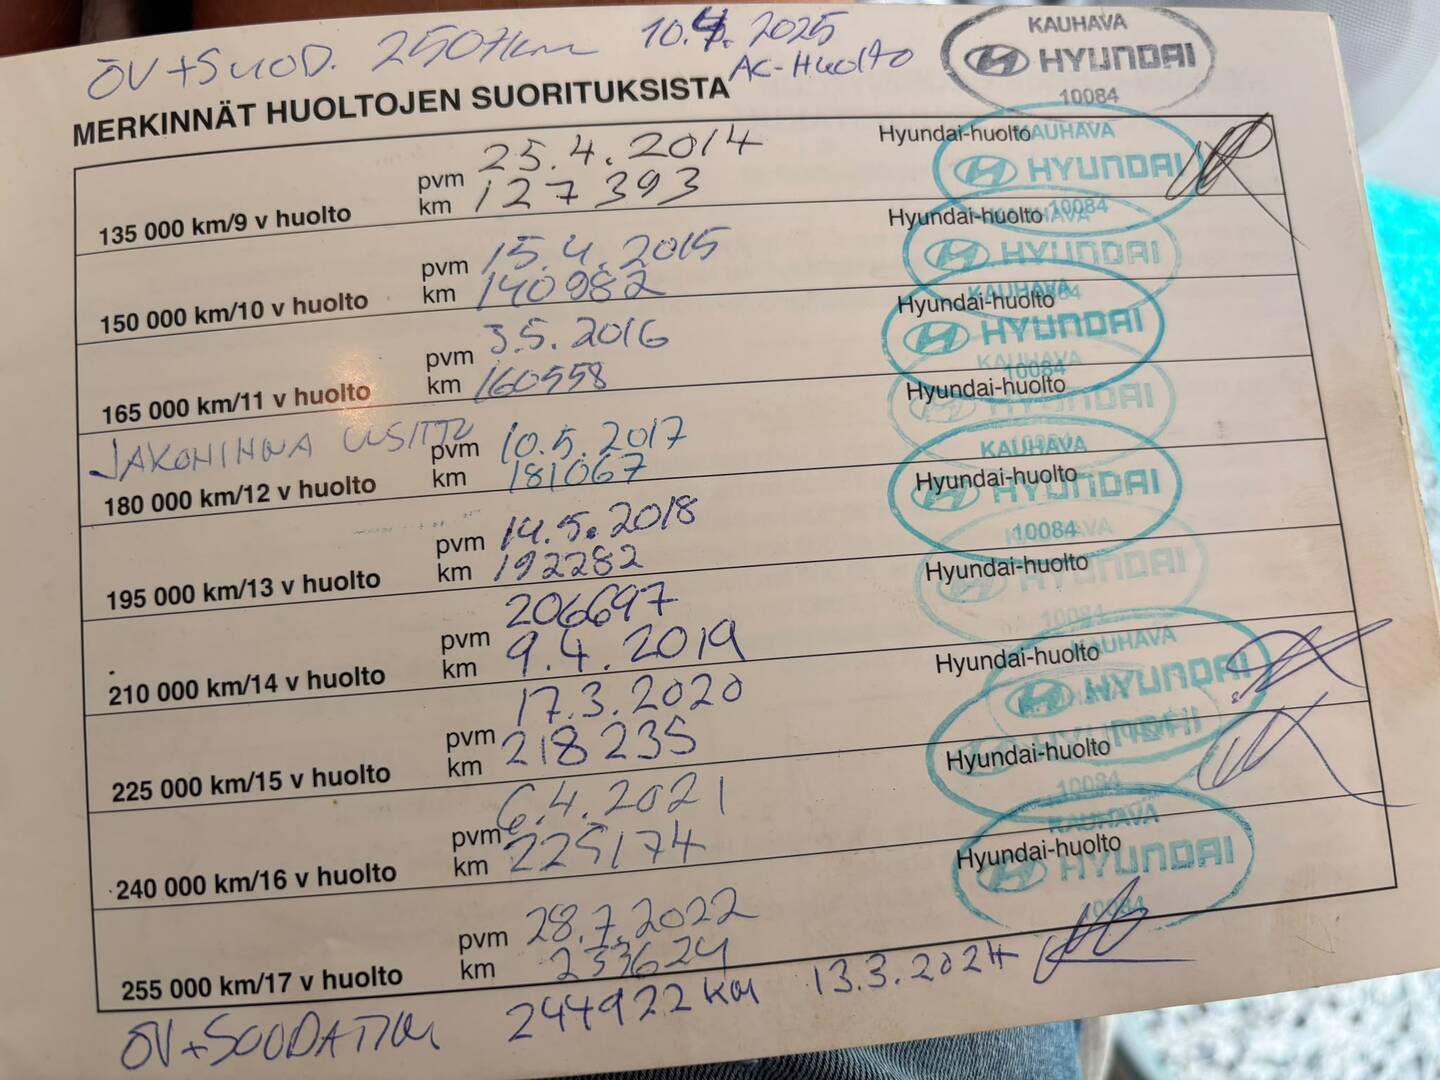 ÖV+SUOD. 25071km 10.4. 2025
AC-HUOLTO
KAUHAVA
HYUNDAI
10084
MERKINNÄT HUOLTOJEN SUORITUKSISTA
135 000 km/9 v huolto pvm 25.4.2014 Hyundai-huolto
km 127393
KAUHAVA
HYUNDAI
10084
150 000 km/10 v huolto pvm 15.4.2015 Hyundai-huolto
km 140982
HYUNDAI
165 000 km/11 v huolto pvm 3.5.2016 Hyundai-huolto
km 160558
KAUHAVA
HYUNDAI
10084
JAKOHIHNA UUSITTU
180 000 km/12 v huolto pvm 10.5.2017 Hyundai-huolto
km 181067
KAUHAVA
HYUNDAI
195 000 km/13 v huolto pvm 14.5.2018 Hyundai-huolto
km 192282
KAUHAVA
HYUNDAI
10084
206697
210 000 km/14 v huolto pvm 9.4.2019 Hyundai-huolto
km
HYUNDAI
10084
225 000 km/15 v huolto pvm 17.3.2020 Hyundai-huolto
km 218235
KAUHAVA
HYUNDAI
240 000 km/16 v huolto pvm 6.4.2021 Hyundai-huolto
km 225174
10084
255 000 km/17 v huolto pvm 28.7.2022 Hyundai-huolto
km 233624
KAUHAVA
HYUNDAI
10084
ÖV+SUODATIN 244922 KM 13.3.2024